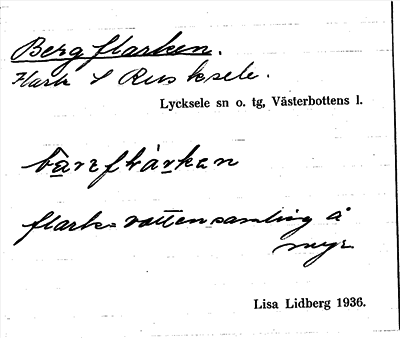 Bergflarken.
Flark S Rusksele.
Lycksele sn o. tg, Västerbottens l.
flark = vattensamling å
myr
Lisa Lidberg 1936.